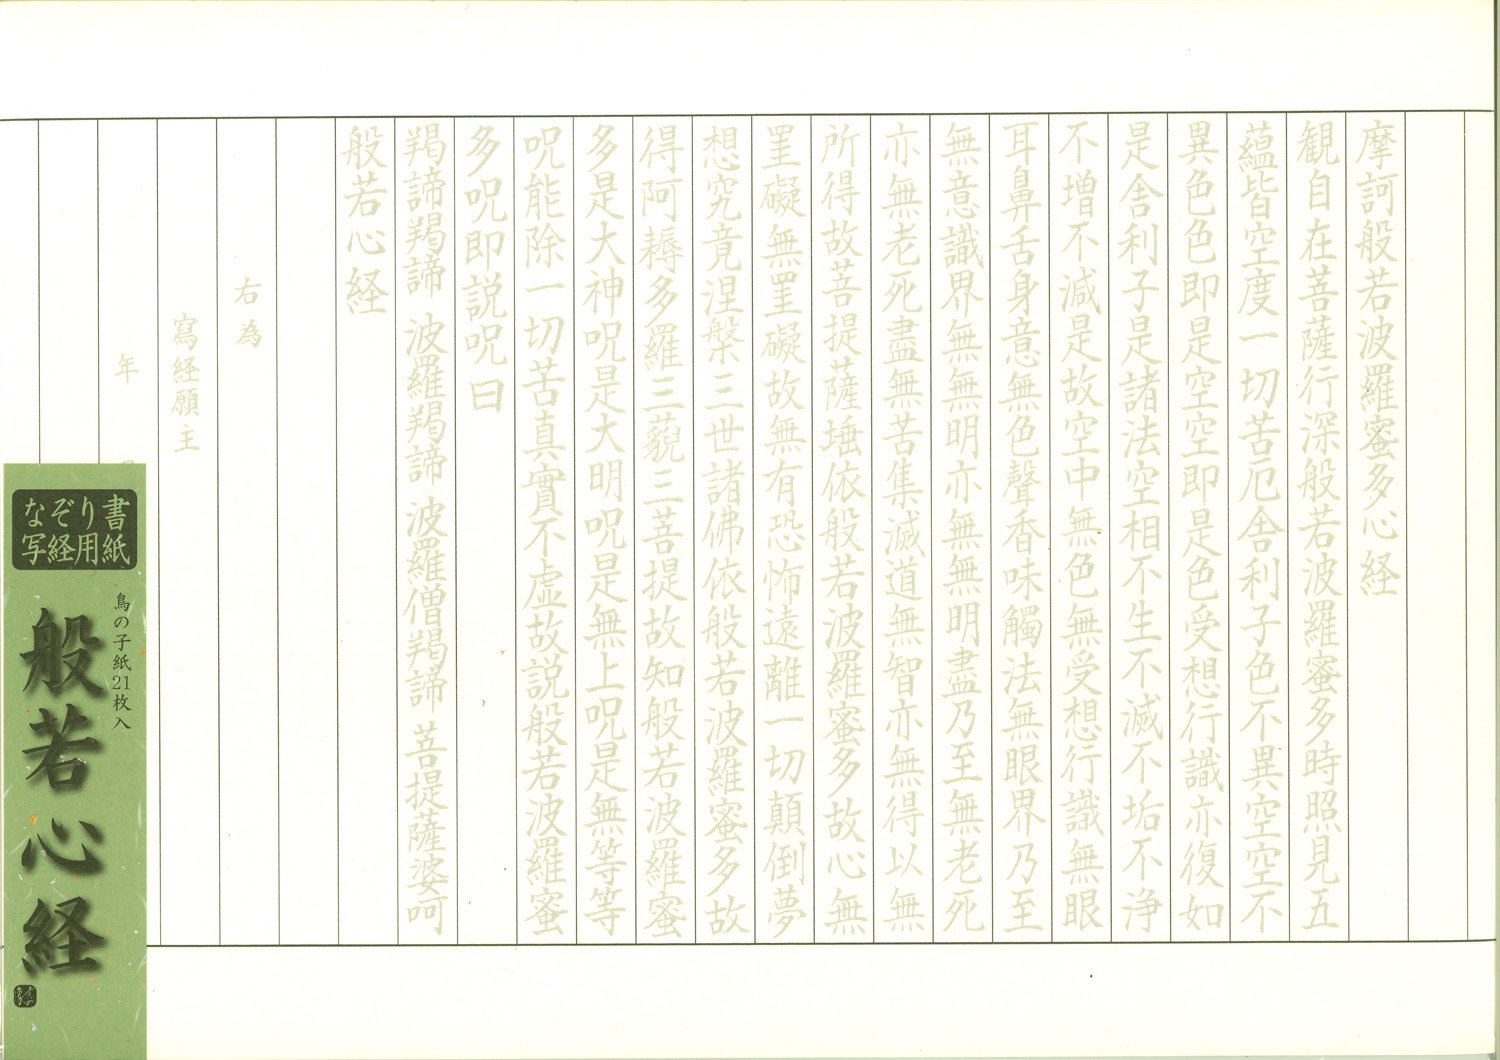 摩訶般若波羅蜜多心経
観自在菩薩行深般若波羅蜜多時照見五
蘊皆空度一切苦厄舎利子色不異空空不
異色色即是空空即是色受想行識亦復如
是舎利子是諸法空相不生不滅不垢不浄
不増不減是故空中無色無受想行識無眼
耳鼻舌身意無色聲香味觸法無眼界乃至
無意識界無無明亦無無明盡乃至無老死
亦無老死盡無苦集滅道無智亦無得以無
所得故菩提薩埵依般若波羅蜜多故心無
罣礙無罣礙故無有恐怖遠離一切顛倒夢
想究竟涅槃三世諸佛依般若波羅蜜多故
得阿耨多羅三藐三菩提故知般若波羅蜜
多是大神呪是大明呪是無上呪是無等等
呪能除一切苦真實不虚故説般若波羅蜜
多呪即説呪曰
羯諦羯諦 波羅羯諦 波羅僧羯諦 菩提薩婆呵
般若心経
右為
寫経願主
年
なぞり書
写経用紙
鳥の子紙21枚入
般若心経